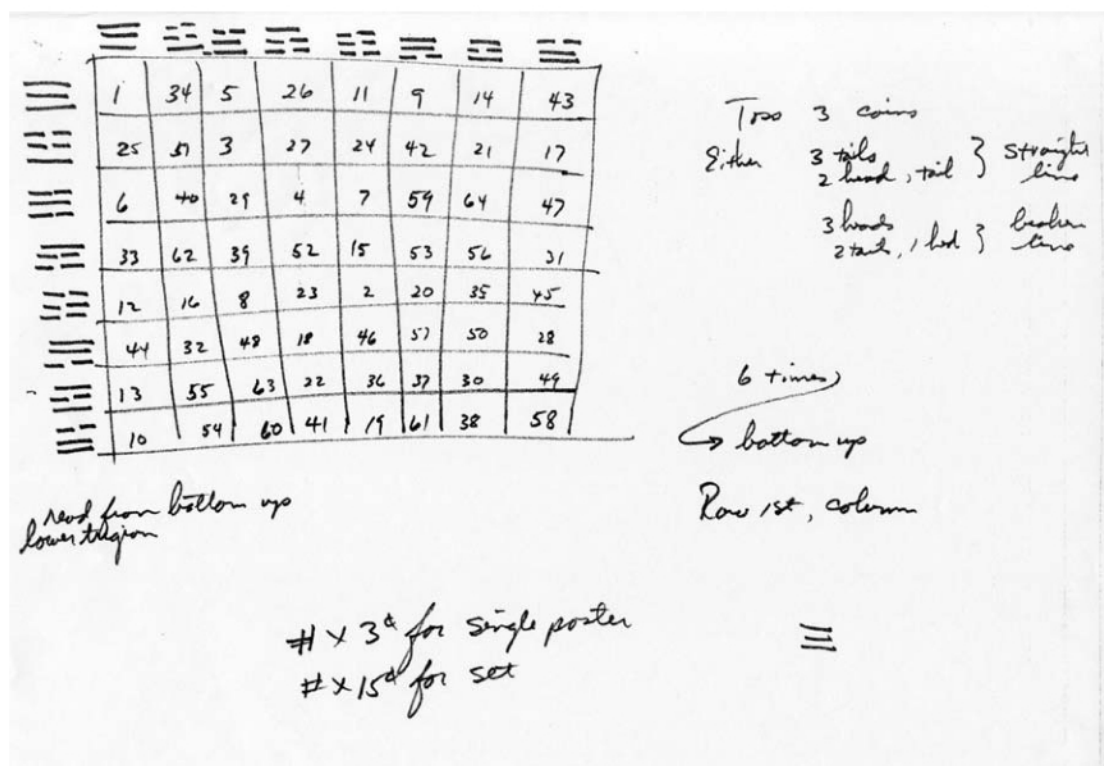 1 34 5 26 11 9 14 43
25 51 3 27 24 42 21 17
6 40 29 4 7 59 64 47
33 62 39 52 15 53 56 31
12 16 8 23 2 20 35 45
44 32 48 18 46 57 50 28
13 55 63 22 36 37 30 49
10 54 60 41 19 61 38 58
read from bottom up
lower trigram
Toss 3 coins
Either 3 tails
2 head, tail } straight line
3 heads
2 tails, 1 hed } broken line
6 times
bottom up
Row 1st, column
# x 3¢ for single poster
# x 15¢ for set